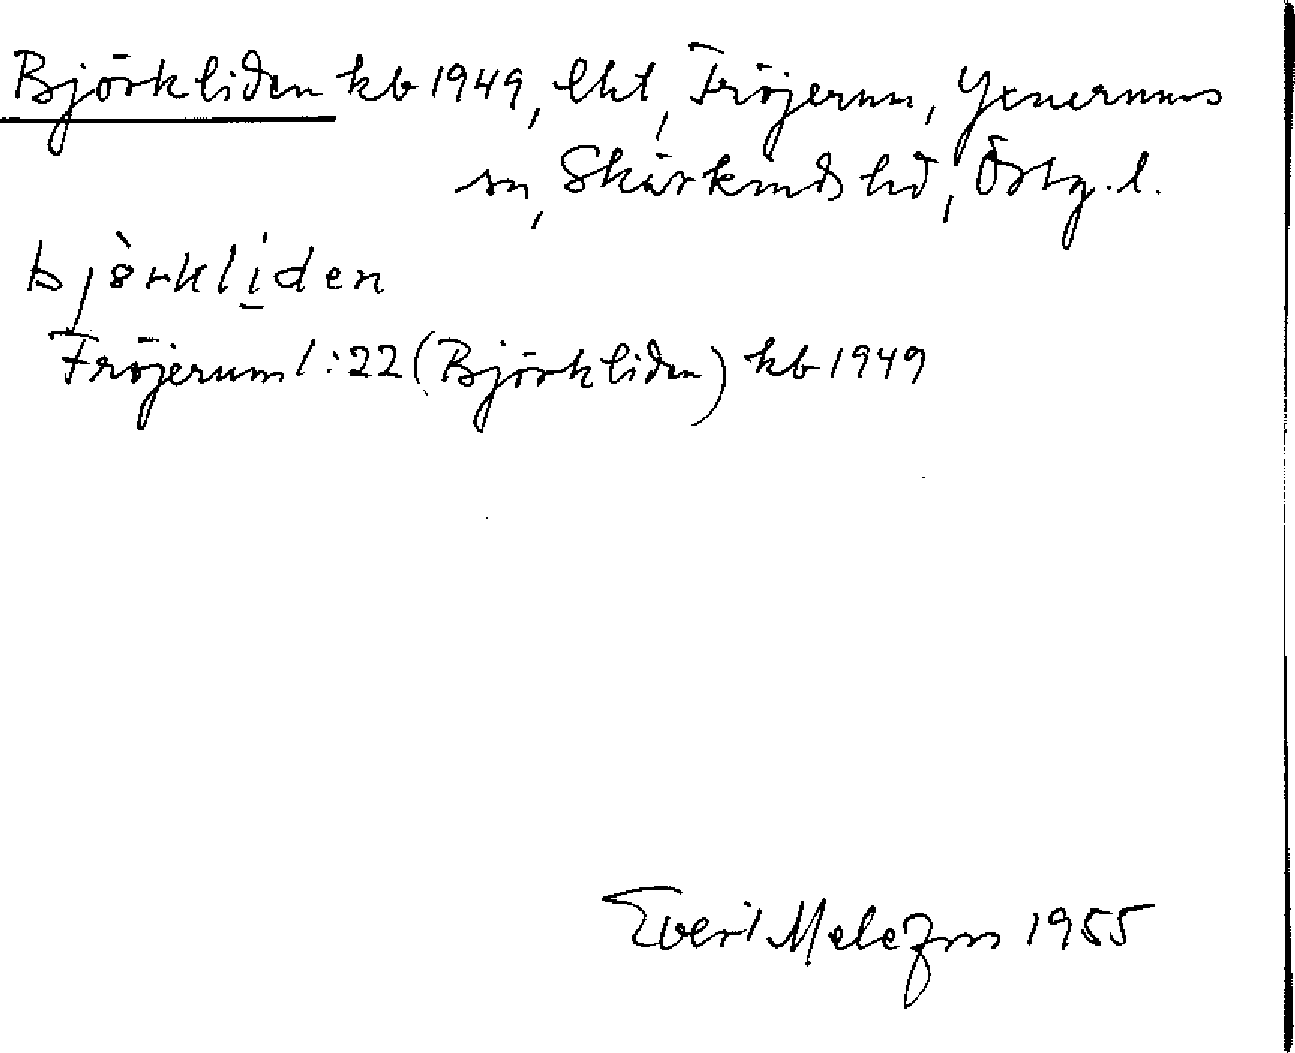 Björkliden kb 1949, lht, Fröjerum, Yxnerums
sn, Skärkinds hd, Östg. l.
bjö̀rklí̱den
Fröjerum 1:22 (Björkliden) kb 1949
Evert Melefors 1955